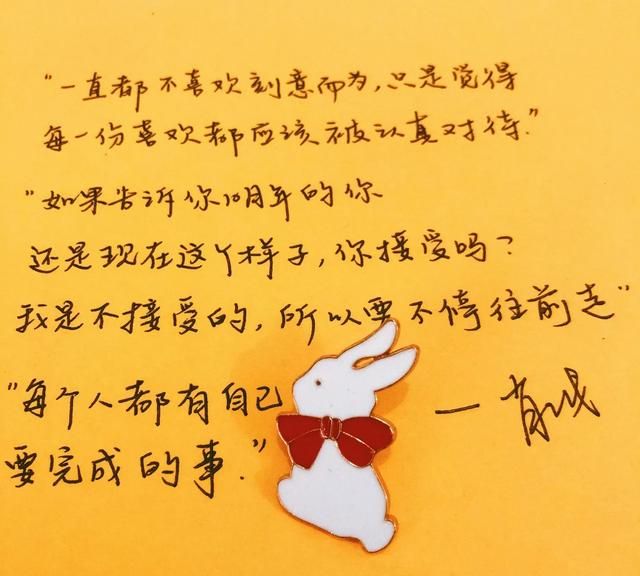 "一直都不喜欢刻意而为,只是觉得
每一份喜欢都应该被认真对待."
"如果告诉你10年的你
还是现在这个样子,你接受吗?
我是不接受的,所以要不停往前走"
"每个人都有自己
要完成的事."
一肖战